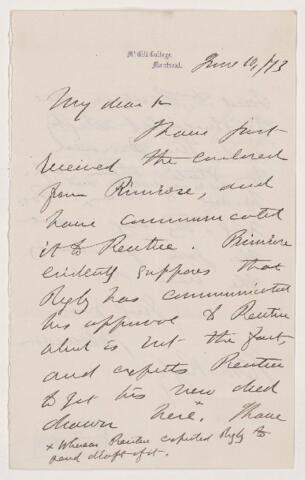 McGill College,
Montreal.
June 10, /73
My dear
I have just
received the enclosed
from Primrose, and
have communicated
it to Rentree. Primrose
evidently supposes that
Rigby has communicated
his approval to Rentree
which is not the fact,
and expects Rentree
to get his new deed
drawn here.x I have
x Whereas Rentree expected Rigby to
send draft of it.